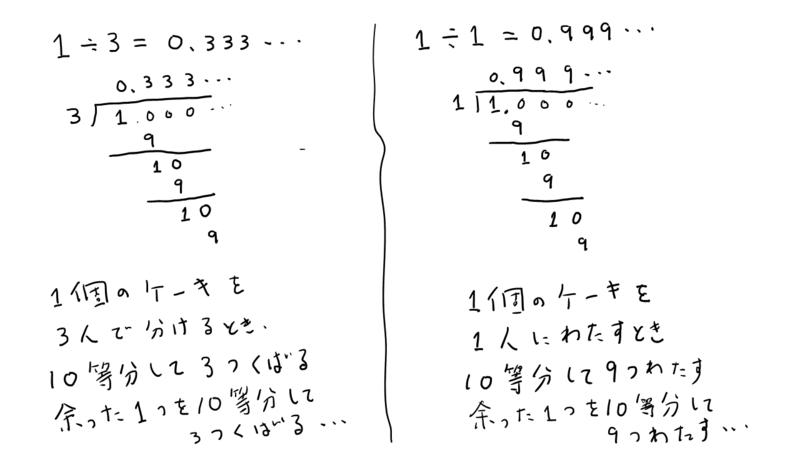 1÷3=0.333…
0.333…
3)1.000…
9
10
9
10
9
1個のケーキを
3人で分けるとき、
10等分して3つくばる
余った1つを10等分して
3つくばる…
1÷1=0.999…
0.999…
1)1.000…
9
10
9
10
9
1個のケーキを
1人にわたすとき
10等分して9つわたす
余った1つを10等分して
9つわたす…